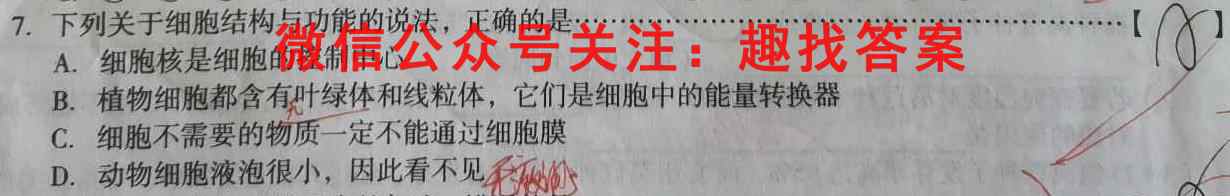 7. 下列关于细胞结构与功能的说法，正确的是……………………………………【 】
微信公众号关注：趣找答案
A. 细胞核是细胞的控制中心
B. 植物细胞都含有叶绿体和线粒体，它们是细胞中的能量转换器
C. 细胞不需要的物质一定不能通过细胞膜
D. 动物细胞液泡很小，因此看不见